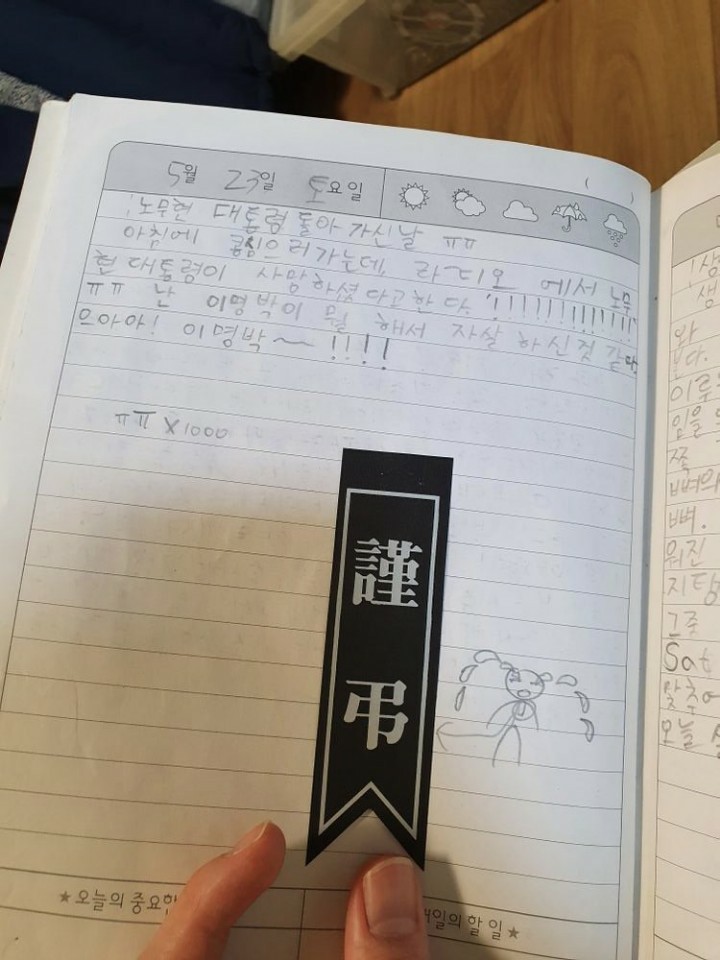 5월 23일 토요일 ( )
!노무현 대통령 돌아가신날 ㅠㅠ
아침에 콩심으러가는데, 라디오에서 노무
현 대통령이 사망하셨다고한다.!!!!!!!!!!!!!!
ㅠㅠ 난 이명박이 뭘 해서 자살하신것 같다.
으아아! 이명박~ !!!!
ㅠㅠ X1000
謹
弔
★오늘의 중요한
일의 할 일★
!
생
와
다.
일을
쪽
뼈와
뼈.
워진
지탱
그중
Sat
맞추어
오늘